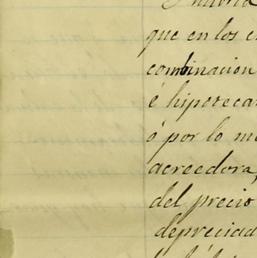 que en los
combinacion
é hipoteca
ó por lo
acreedora,
del precio
depreciad